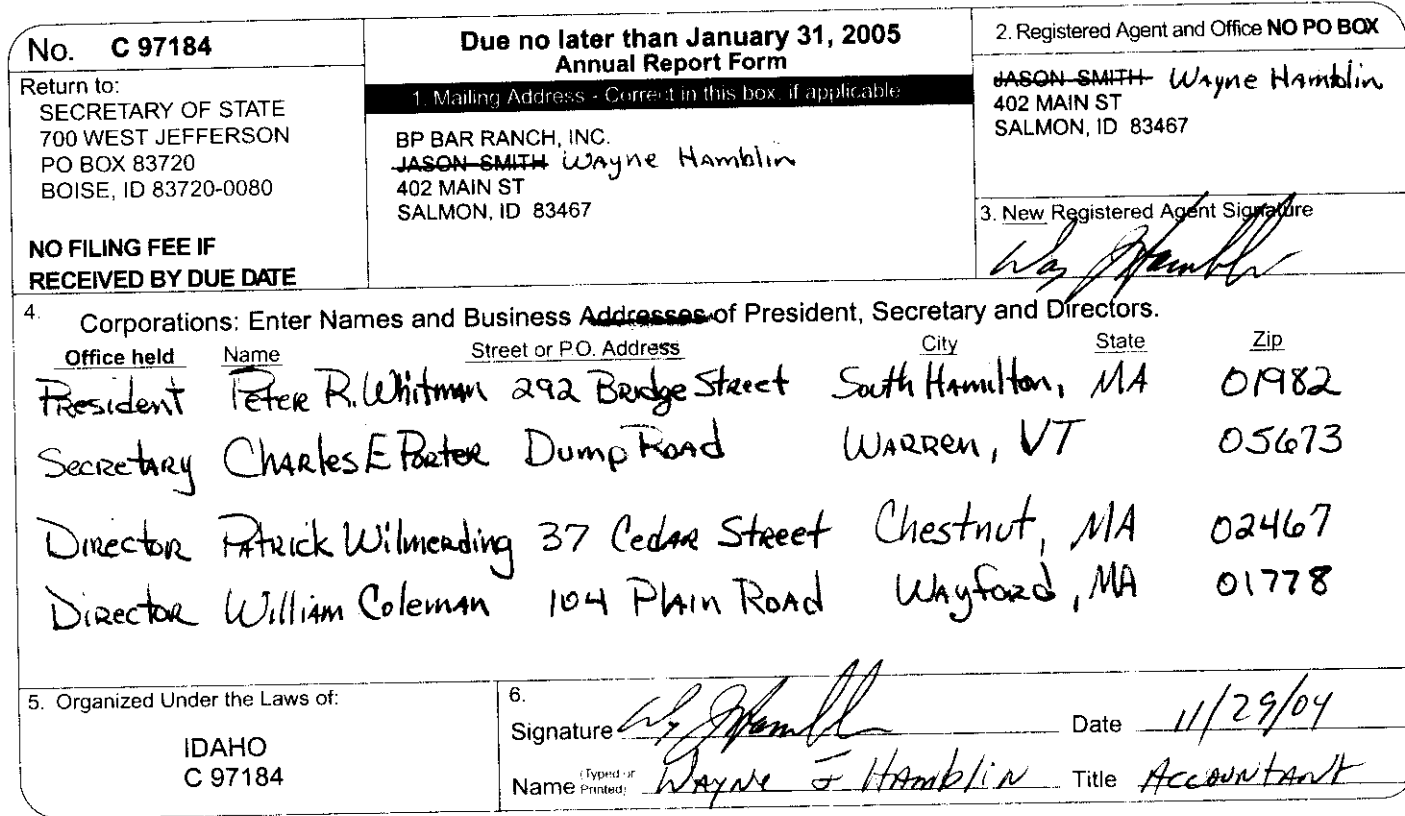 No. C 97184
Return to:
SECRETARY OF STATE
700 WEST JEFFERSON
PO BOX 83720
BOISE, ID 83720-0080
NO FILING FEE IF
RECEIVED BY DUE DATE
Due no later than January 31, 2005
Annual Report Form
1. Mailing Address - Correct in this box, if applicable
BP BAR RANCH, INC.
JASON SMITH Wayne Hamblin
402 MAIN ST
SALMON, ID 83467
2. Registered Agent and Office NO PO BOX
JASON SMITH Wayne Hamblin
402 MAIN ST
SALMON, ID 83467
3. New Registered Agent Signature
4. Corporations: Enter Names and Business Addresses of President, Secretary and Directors.
Office held Name Street or P.O. Address City State Zip
President Peter R. Whitman 292 Bridge Street South Hamilton, MA 01982
Secretary Charles E Porter Dump Road Warren, VT 05673
Director Patrick Wilmerding 37 Cedar Street Chestnut, MA 02467
Director William Coleman 104 Plain Road Wayford, MA 01778
5. Organized Under the Laws of:
IDAHO
C 97184
6.
Signature Date 11/29/04
Name (Typed or Printed) Wayne J Hamblin Title Accountant